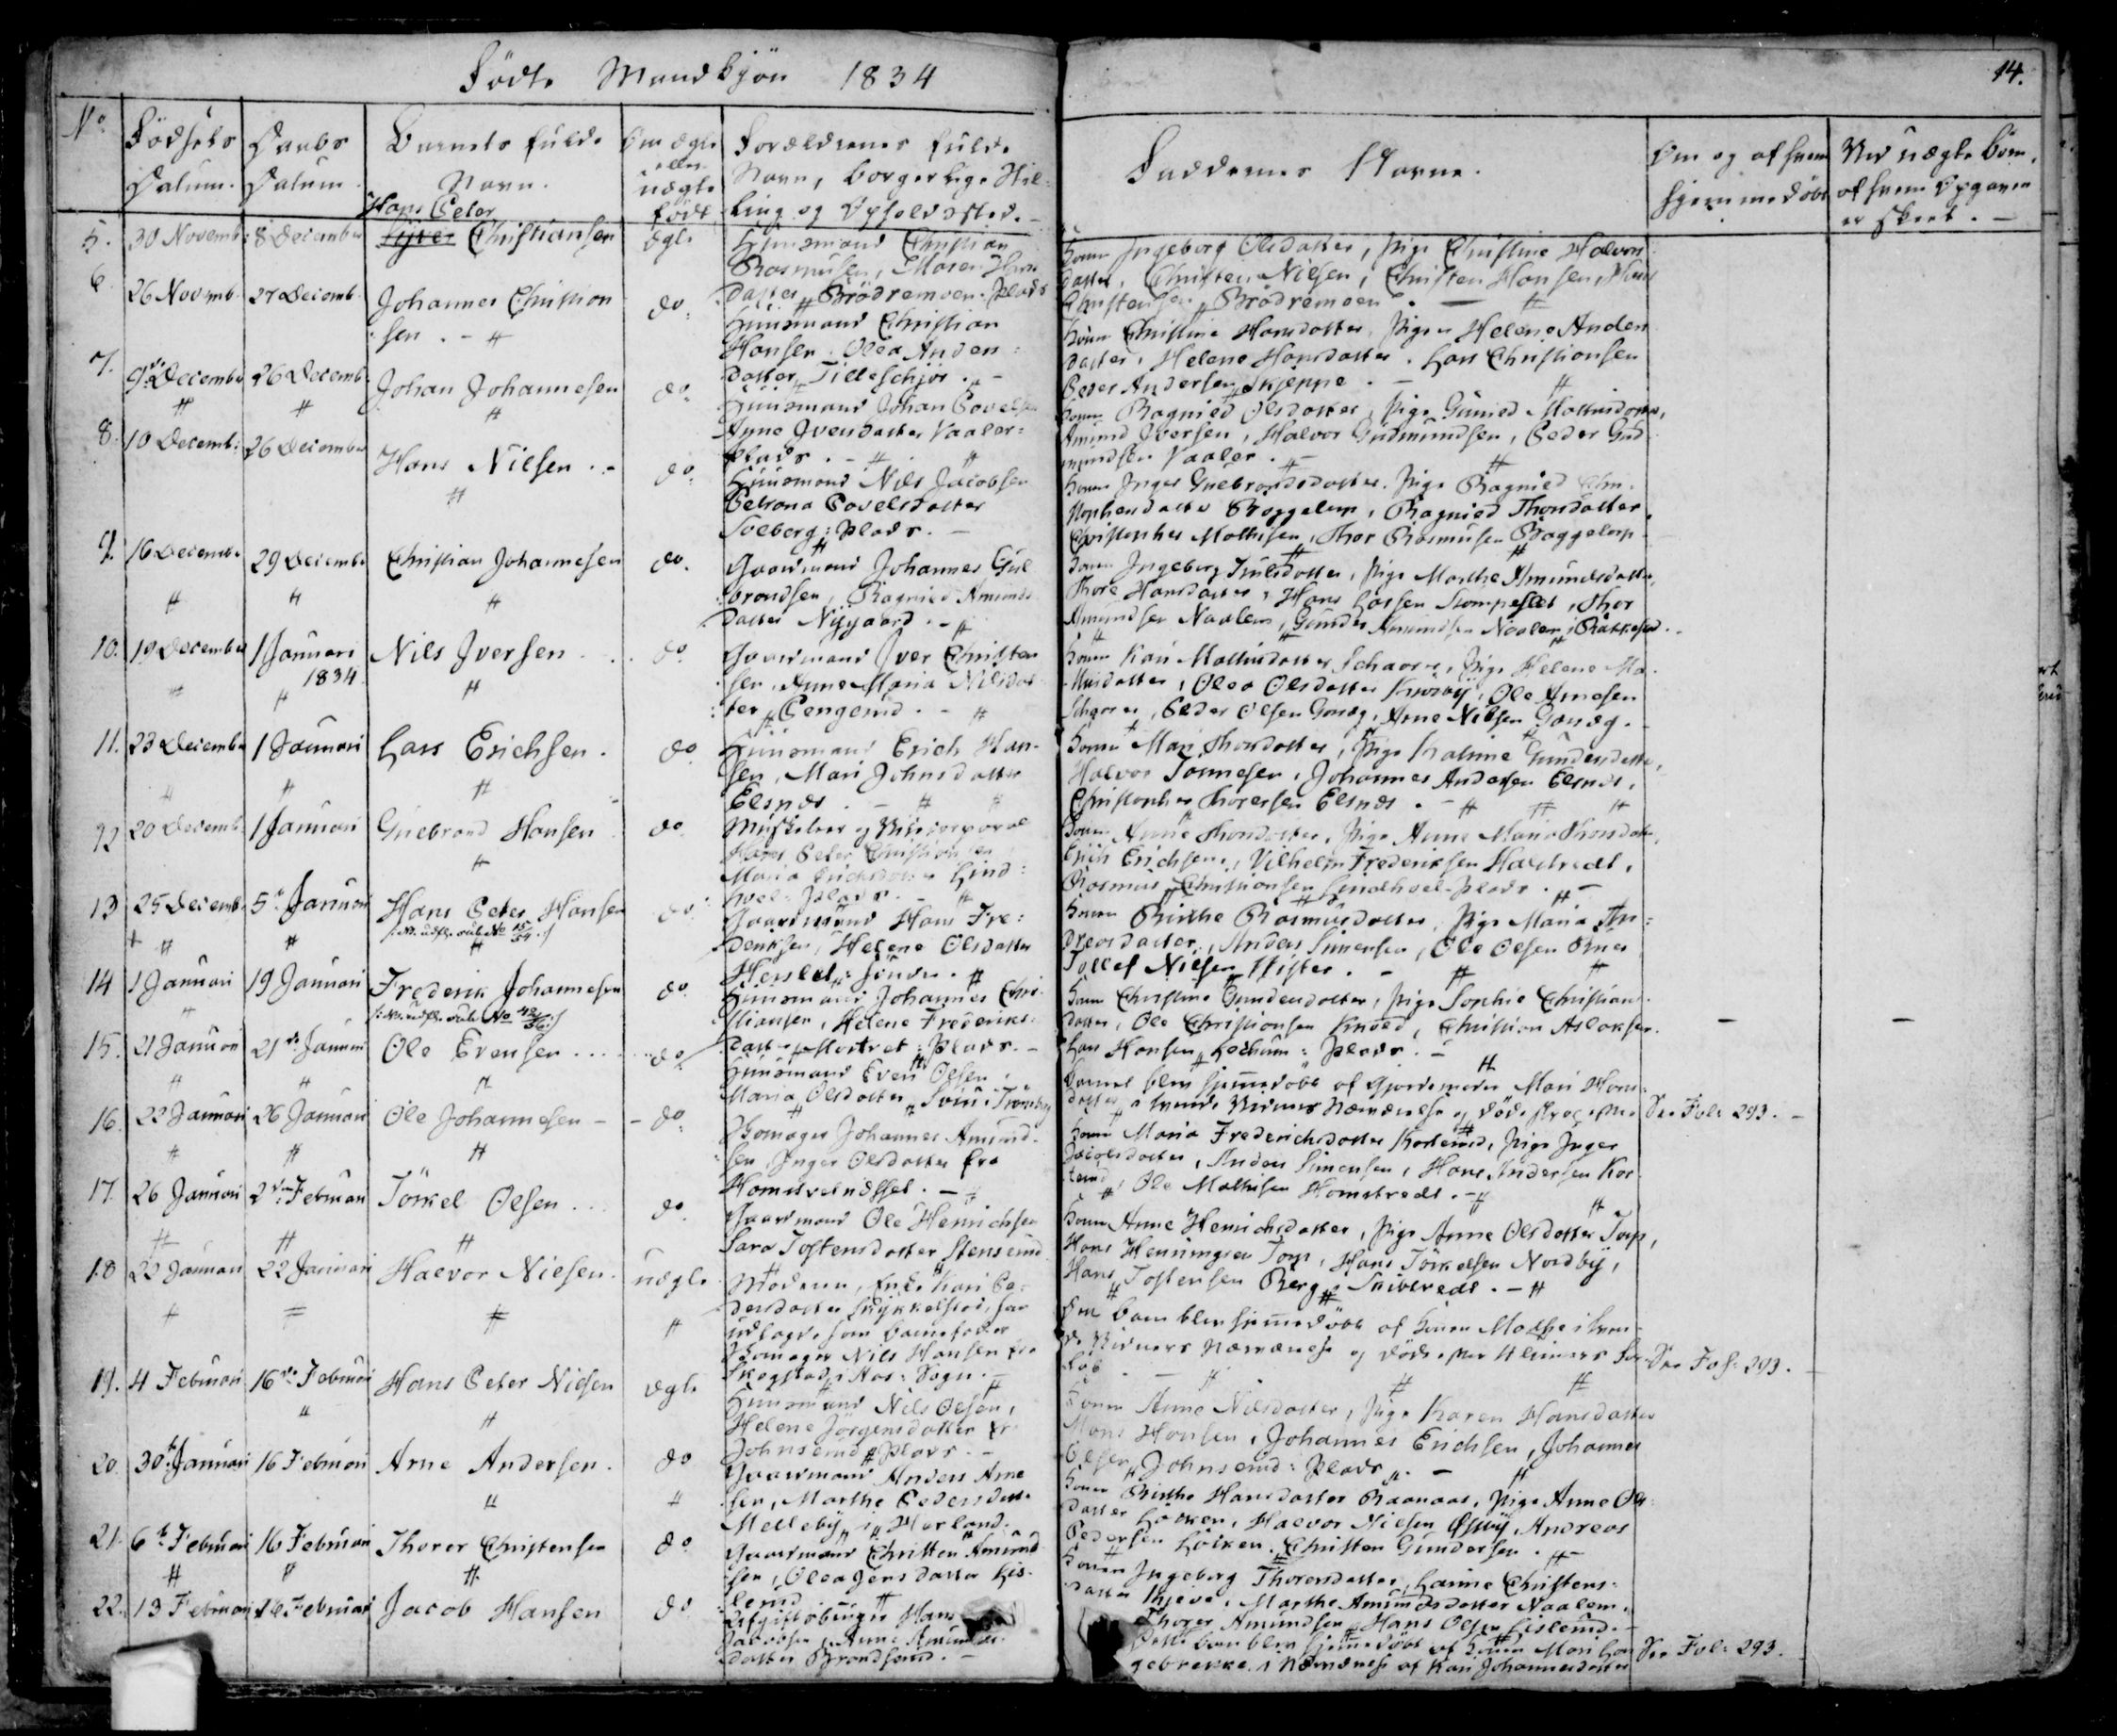 Födte Mandkjön 1834
14.
No
Födsels Datum.
Daabs Datum.
Barnets fulde Navn.
Om ægte eller uægte født
Forældrenes fulde Navn, borgerlige Stilling og Opholdssted.
Faddernes Navne.
Om og af hvem hjemmedöbt
Ved uægte Börn, af hvem Opgaven er skeet.
5. 30 Novembr 8 December Hans Peter Christiansen ægte
Huusmand Christian
Rasmusen, Maren Hans
datter Brödremoen Plads
Konen Ingeborg Olsdatter, Pige Christine Halvors
datter, Christen Nielsen, Christen Hansen, Hans
Christensen Brödremoen
6 26 Novemb. 27 Decemb. Johannes Christian
sen do
Huusmand Christian
Hansen, Olea Anders
datter Tilleschjör
Konen Christine Hansdatter, Pigen Helene Anders
datter, Helene Hansdatter, Lars Christiansen
Peder Andersen Skjeppe
7. 9de December 26 Decemb. Johan Johannesen do
Huusmand Johan Povelsen
Anne Iversdatter Vaaler
Plads
Konen Ragnied Olsdatter, Pige Gunied Mathisdatter,
Amund Iversen, Halvor Gudmundsen, Peder Gud
mundsen Vaaler
8. 10 Decemb: 26 December Hans Nilsen do
Huusmand Nils Jacobsen
Petrona Povelsdatter
Solberg: Plads.
Konen Inger Gulbrandsdatter, Pige Ragnied Chri
stophersdatter Boggelerp, Ragnied Thorsdatter,
Christopher Mathisen, Thor Rasmusen Boggelerp
9. 16 Decembr 29 Decembr Christian Johannesen do
Gaardmand Johannes Gul
brandsen, Ragnied Amunds
datter Nygaard
Konen Ingeborg Truelsdatter, Pige Marthe Amundsdatter,
Thore Hansdatter, Hans Larsen Stompeslet, Thor
Amundsen Naalem, Gunder Amundsen Naalem i Rakkestad
10. 19 December 1 Januari 1834 Nils Iversen do
Gaardmand Iver Christen
sen, Anne Maria Nilsdat
ter Pengerud
Konen Kari Mathisdatter Schaarer, Pige Helene Ma
thisdatter, Olea Olsdatter Knöby, Ole Arnesen
Schaarer, Peder Olsen Garsæg, Arne Nilsen Garsæg.
11. 23 Decembr 1 Januari Lars Erichsen. do
Huusmand Erich Han
sen, Mari Johnsdatter
Elsnes
Konen Mari Thorsdatter, Pige Katrine Gundersdatter,
Halvor Tonnesen, Johannes Andersen Elsnes,
Christopher Thoresen Elsnes
12 20 Decemb. 1 Januari Gulbrand Hansen do
Musketeer og Vicecorporal
Hans Peter Christiansen
Maria Erichsdatter Lind
hoel Plads
Konen Anne Thorsdatter, Pige Anne Maria Thorsdatter,
Erich Erichsen, Vilhelm Frederiksen Haslredt,
Rasmus Christiansen Lindhoel-Plads
13 25 Decemb. 5te Januari Hans Peter Hansen do
Gaardmand Hans Fre
deriksen, Helene Olsdatter
Herslet: Söndre
Konen Birthe Rasmusdatter, Pige Maria An
dreasdatter, Anders Simensen, Ole Olsen
Tollef Nielsen Vister
14 1 Januari 19 Januari Frederik Johannesen do
Huusmand Johannes Chri
stiansen, Helene Frederiks
datter Mortvet: Plads
Konen Christine Gundersdatter, Pige Sophie Christians
datter, Ole Christiansen Knold, Christian Aslaksen.
Lars Hansen Lechum: Plads.
15. 21 Januari 21de Januari Ole Evensen do
Huusmand Even Olsen
Maria Olsdatter
Barnet blev hjemmedöbt af Gjordemoder Mari Hans
datter
See Fol: 293.
16. 22 Januari 26 Januari Ole Johannesen do
Skomager Johannes Amund
sen, Inger Olsdatter fra
Homstvedtödssel
Konen Maria Frederichsdatter Korterud, Pige Inger
Jacobsdatter, Anders Simensen, Hans Andersen Kor
terud, Ole Mathisen Homstvedt
17. 26 Januari 2den Februari Törkel Olsen do
Gaardmand Ole Henrichsen
Sara Tostensdatter Stensrud
Konen Anne Henrichsdatter, Pige Anne Olsdatter Torp,
Hans Henningsen Torp, Hans Törkelsen Nordby,
Hans Tostensen Berg i Skibtvedt
18 22 Januari 22 Januari Halvor Nielsen uægte
Moderen, Enke Kari Pe
dersdatter Skykkelstad, har
udlagt som Barnefader
Skomager Nils Hansen fra
Skogstad i Aas: Sogn
Dette Barn blev hjemmedöbt af Konen Mathe i
de Vidners Nærværelse og döde efter 4 Timers For
löb
See Fol: 293.
19. 4 Februari 16de Februari Hans Peter Nielsen ægte
Huusmand Nils Olsen,
Helene Jörgensdatter fra
Johnsrud Plads
Konen Anne Nilsdatter, Pige Karen Hansdatter
Hans Hansen, Johannes Erichsen, Johannes
Olsen Johnsrud: Plads
20. 30te Januari 16 Februari Arne Andersen do
Gaardmand Anders Arne
sen, Marthe Pedersdatter
Melleby i Herland
Konen Birthe Hansdatter Raanaas, Pige Anne Ols
datter Löcken, Halvor Nielsen Östby, Andreas
Pedersen Löcken, Christen Gundersen
21. 6te Februari 16 Februari Thorer Christensen do
Gaardmand Christen Amund
sen, Olea Jensdatter Lis
lerud
Konen Ingeborg Thorersdatter, Larine Christens
datter Kjeve, Marthe Amundsdatter Naalem,
Thorer Amundsen, Hans Olsen Lislerud
22. 13 Februari 16 Februari Jacob Hansen do
Hans
Jacobsen, Anne Amunds
datter Brandsrud
Dette Barn blev hjemmedöbt af Konen Mari Lan
gebrekke i Nærværelse af Kari Johannesdatter
See Fol: 293.